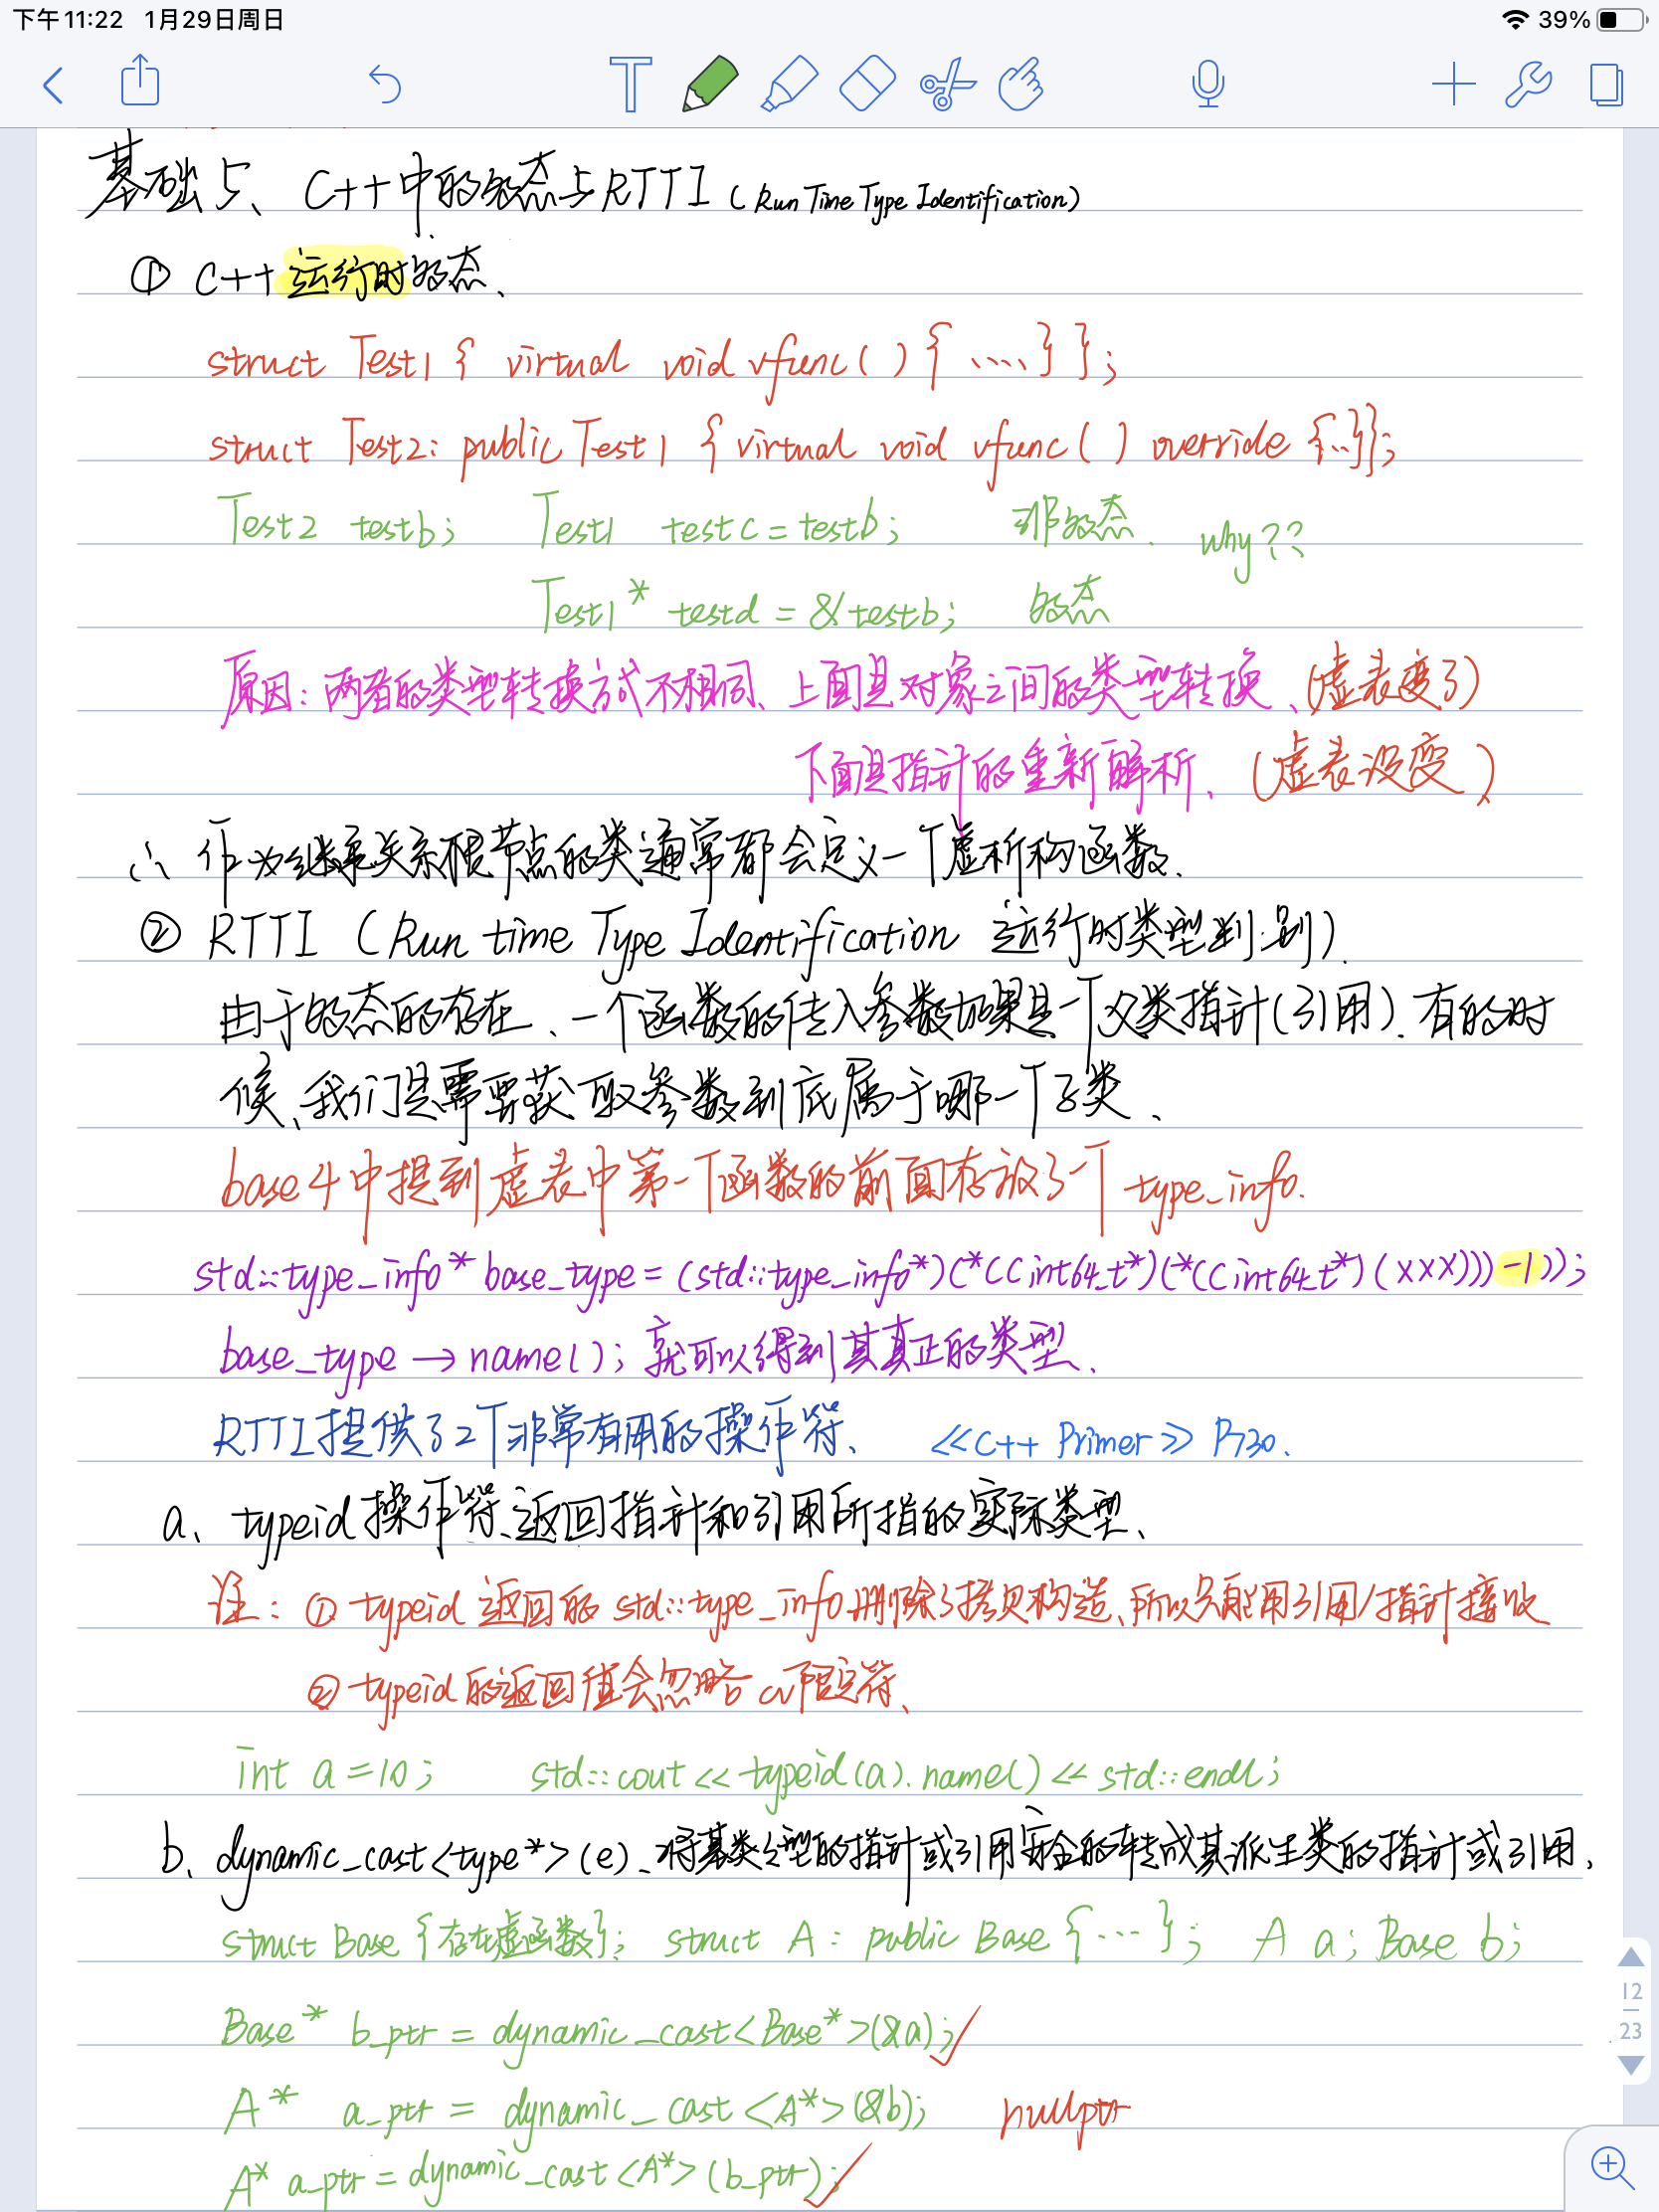 下午11:22 1月29日周日
39%
基础5、C++中的多态与RTTI (Run Time Type Identification)
① C++运行时多态、
struct Test1 { virtual void vfunc() { .... } };
struct Test2: public Test1 { virtual void vfunc() override {...}};
Test2 testb; Test1 testc = testb; 非多态. why??
Test1* testd = &testb; 多态
原因: 两者的类型转换方式不相同、上面是对象之间的类型转换、(虚表变了)
下面是指针的重新解析、(虚表没变)
∴ 作为继承关系根节点的类通常都会定义一个虚析构函数.
② RTTI (Run time Type Identification 运行时类型判别).
由于多态的存在、一个函数的传入参数如果是一个父类指针(引用). 有的时
候、我们是需要获取参数到底属于哪一个子类、
base4中提到虚表中第一个函数的前面存放了一个 type_info.
std::type_info* base_type = (std::type_info*)(*((int64_t*)(*((int64_t*)(xxx)))-1));
base_type → name(); 就可以得到其真正的类型、
RTTI提供了2个非常有用的操作符、 <<C++ Primer>> P730.
a、typeid操作符、返回指针和引用所指的实际类型、
注: ① typeid 返回的 std::type_info 删除了拷贝构造、所以只能用引用/指针接收
② typeid 的返回值会忽略 cv限定符、
int a = 10; std::cout << typeid(a).name() << std::endl;
b、dynamic_cast<type*>(e)、将基类类型的指针或引用安全的转成其派生类的指针或引用、
struct Base {存在虚函数}; struct A: public Base {...}; A a; Base b;
Base* b_ptr = dynamic_cast<Base*>(&a); ✓
A* a_ptr = dynamic_cast<A*>(&b); nullptr
A* a_ptr = dynamic_cast<A*>(b_ptr); ✓
12
23